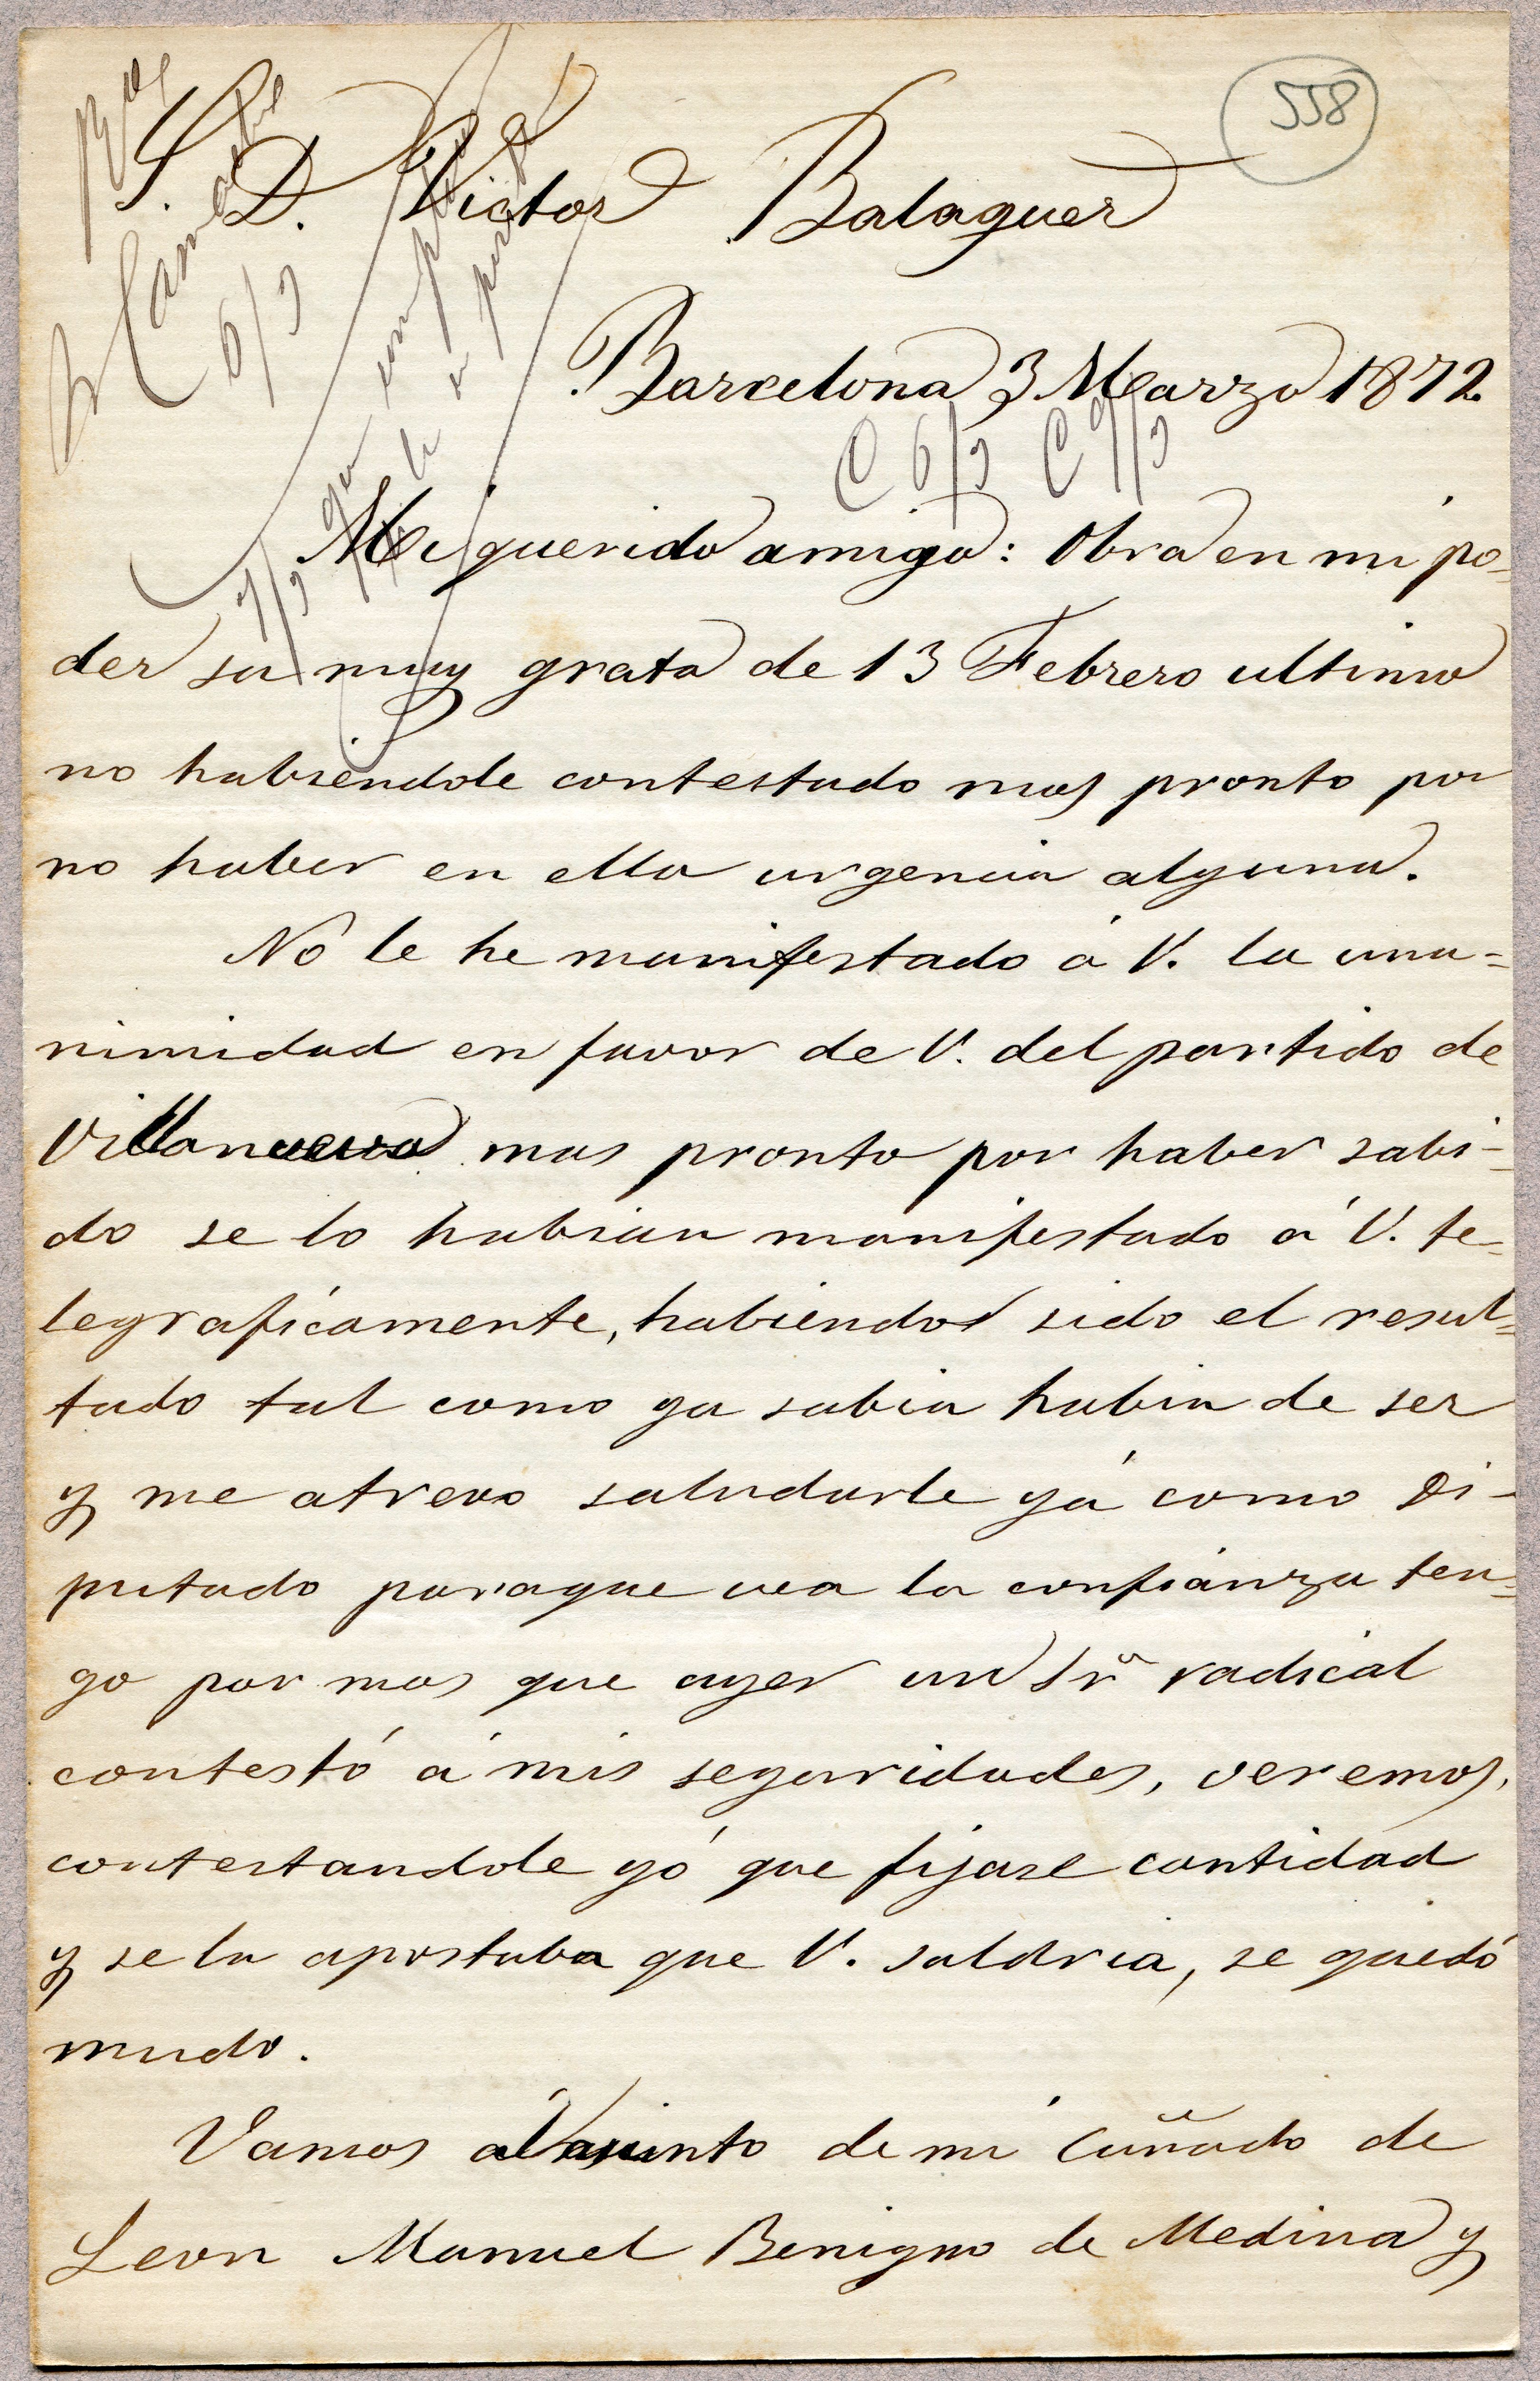 558
S. D. Victor Balaguer
Barcelona 3 Marzo 1872.
C 6/3 C 9/3
Mi querido amigo: Obra en mi po-
der su muy grata de 13 Febrero ultimo
no habiendole contestado mas pronto por
no haber en ella urgencia alguna.
No le he manifestado á V. la una=
nimidad en favor de V. del partido de
Villanueva mas pronto por haber sabi-
do se lo habian manifestado á V. te-
legraficamente, habiendo sido el resul=
tado tal como ya sabia habia de ser
y me atrevo saludarle yá como Di-
putado paraque vea la confianza ten=
go por mas que ayer un Sr. radical
contestó á mis seguridades, veremos,
contestandole yó que fijase cantidad
y se la apostaba que V. saldria, se quedó
mudo.
Vamos al asunto de mi cuñado de
Leon Manuel Benigno de Medina y